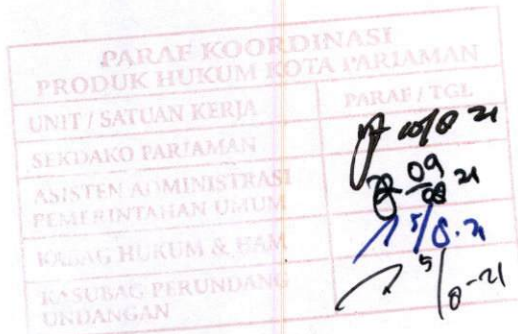 PARAF KOORDINASI
PRODUK HUKUM KOTA PARIAMAN
UNIT / SATUAN KERJA PARAF / TGL
SEKDAKO PARIAMAN
ASISTEN ADMINISTRASI 09/08 21
PEMERINTAHAN UMUM
KABAG HUKUM & HAM 5/8.21
KASUBAG PERUNDANG 5/8-21
UNDANGAN